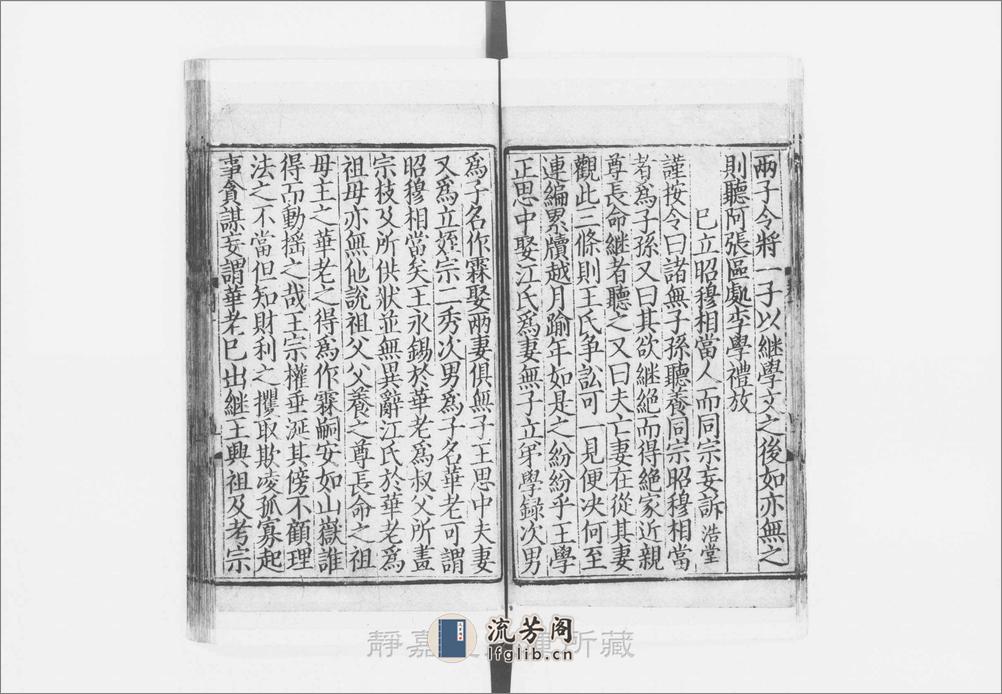 兩子令將一子以継學文之後如亦無之
則聽阿張區處李學禮放
已立昭穆相當人而同宗妄訴 浩堂
謹按令曰諸無子孫聽養同宗昭穆相當
者爲子孫又曰其欲継絕而得絕家近親
尊長命継者聽之又曰夫亡妻在從其妻
觀此三條則王氏争訟可一見便决何至
連編累牘越月踰年如是之紛紛乎王學
正思中娶江氏爲妻無子立弟學錄次男
爲子名作霖娶兩妻俱無子王思中夫妻
又爲立姪宗二秀次男爲子名華老可謂
昭穆相當矣王永錫於華老爲叔父所畫
宗枝父所供狀並無異辭江氏於華老爲
祖母亦無他說祖父父養之尊長命之祖
母主之華老之得爲作霖嗣安如山嶽誰
得而動揺之哉王宗權垂涎其傍不顧理
法之不當但知財利之攫取欺凌孤寡起
事貪謀妄謂華老已出継王興祖及考宗
靜嘉 所藏
流芳阁
lfglib.cn